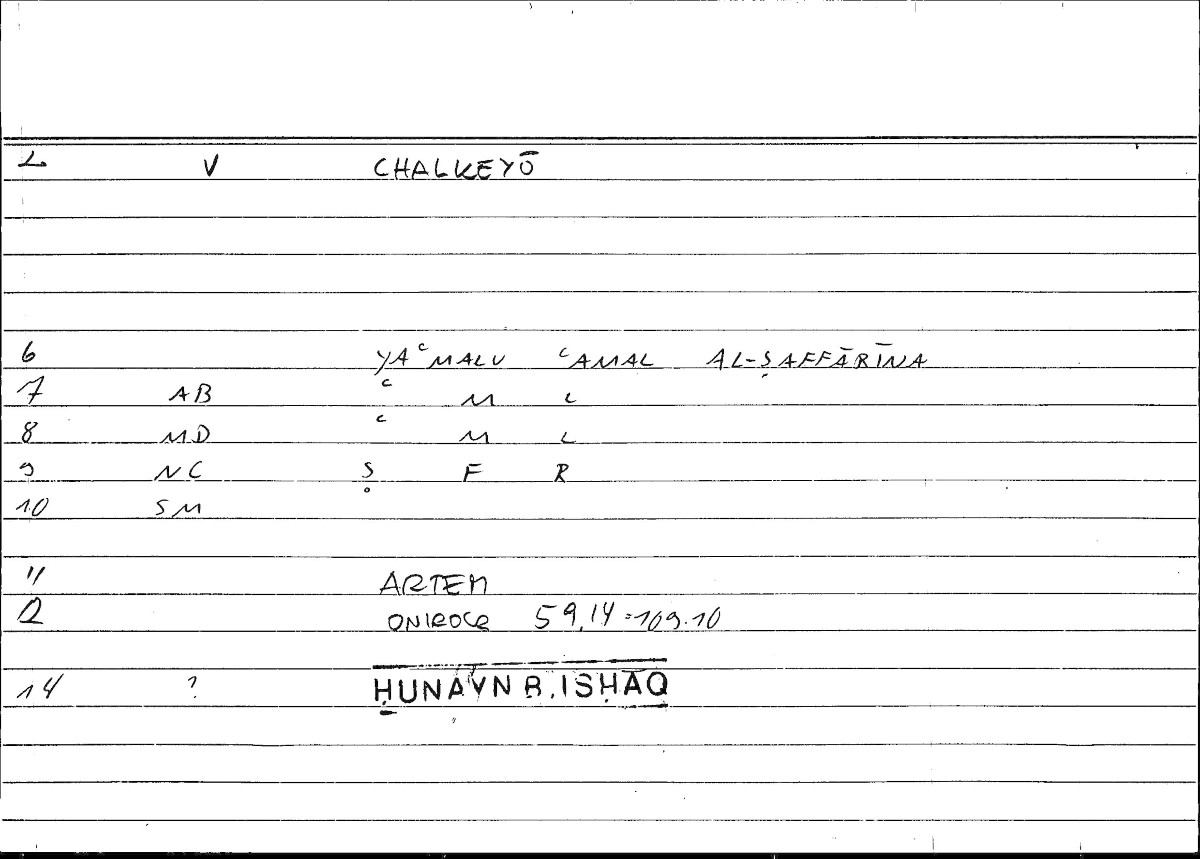 2 V CHALKEYŌ
6 YAᶜMALU ᶜAMAL AL-ṢAFFĀRĪNA
7 AB ᶜ M L
8 MD ᶜ M L
9 NC Ṣ F R
10 SM
11 ARTEM
12 ONIROCR 59,14=109.10
14 ? ḤUNAYN B. ISḤĀQ